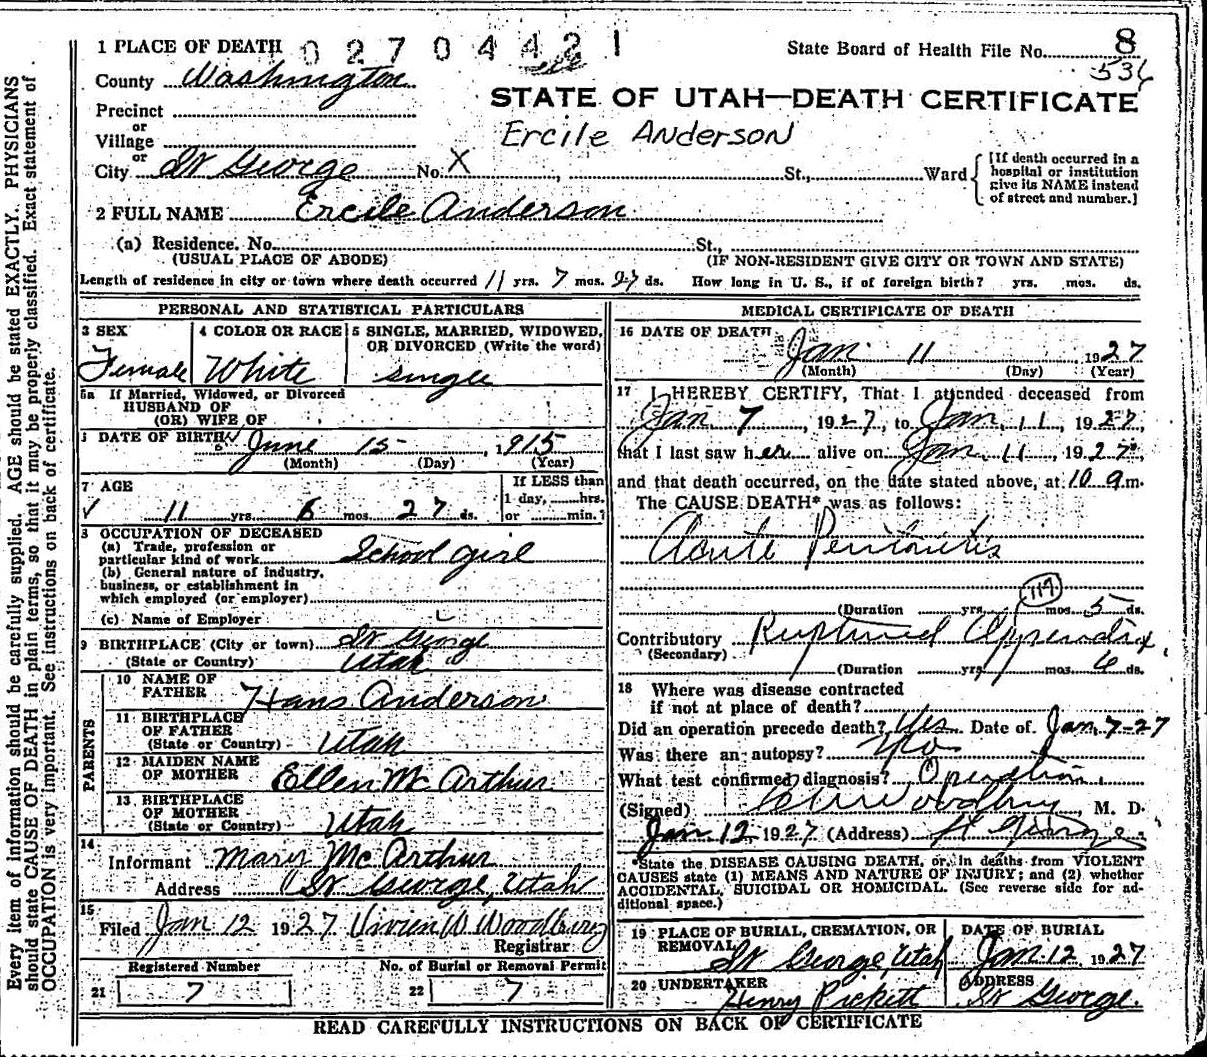 1 PLACE OF DEATH 0 2 7 0 4 4 2 1 State Board of Health File No. 8
County Washington 536
STATE OF UTAH—DEATH CERTIFICATE
Precinct
or
Village
Ercile Anderson
or
City St George No. X St., Ward
[If death occurred in a
hospital or institution
give its NAME instead
of street and number.]
2 FULL NAME Ercile Anderson
(a) Residence. No. St.,
(USUAL PLACE OF ABODE) (IF NON-RESIDENT GIVE CITY OR TOWN AND STATE)
Length of residence in city or town where death occurred 11 yrs. 7 mos. 27 ds. How long in U. S., if of foreign birth? yrs. mos. ds.
PERSONAL AND STATISTICAL PARTICULARS
3 SEX 4 COLOR OR RACE 5 SINGLE, MARRIED, WIDOWED,
OR DIVORCED (Write the word)
Female White Single
5a If Married, Widowed, or Divorced
HUSBAND OF
(OR) WIFE OF
DATE OF BIRTH June 15 1915
(Month) (Day) (Year)
7 AGE If LESS than
1 day, hrs.
11 yrs. 6 mos. 27 ds. or min.?
OCCUPATION OF DECEASED
(a) Trade, profession or
particular kind of work School girl
(b) General nature of industry,
business, or establishment in
which employed (or employer)
(c) Name of Employer
9 BIRTHPLACE (City or town) St George
(State or Country) Utah
PARENTS
10 NAME OF
FATHER Hans Anderson
11 BIRTHPLACE
OF FATHER
(State or Country) Utah
12 MAIDEN NAME
OF MOTHER Ellen McArthur
13 BIRTHPLACE
OF MOTHER
(State or Country) Utah
14
Informant Mary McArthur
Address St George, Utah
15
Filed Jan 12 1927 Vivien W Woodbury
Registrar
Registered Number No. of Burial or Removal Permit
21 7 22 7
MEDICAL CERTIFICATE OF DEATH
16 DATE OF DEATH
Jan 11 1927
(Month) (Day) (Year)
17 I HEREBY CERTIFY, That I attended deceased from
Jan 7, 1927, to Jan, 11, 1927,
that I last saw her alive on Jan, 11, 1927,
and that death occurred, on the date stated above, at 10 9 m.
The CAUSE DEATH* was as follows:
Acute Peritonitis
119
(Duration yrs. mos. 5 ds.
Contributory Ruptured Appendix
(Secondary)
(Duration yrs. mos. 6 ds.
18 Where was disease contracted
if not at place of death?
Did an operation precede death? Yes Date of Jan 7-27
Was there an autopsy? No
What test confirmed diagnosis? Operation
(Signed) Woodbury, M. D.
Jan 12 1927 (Address) St George
*State the DISEASE CAUSING DEATH, or, in deaths from VIOLENT
CAUSES state (1) MEANS AND NATURE OF INJURY; and (2) whether
ACCIDENTAL, SUICIDAL OR HOMICIDAL. (See reverse side for ad-
ditional space.)
19 PLACE OF BURIAL, CREMATION, OR DATE OF BURIAL
REMOVAL St George, Utah Jan 12, 1927
20 UNDERTAKER ADDRESS
Henry Pickett St George.
READ CAREFULLY INSTRUCTIONS ON BACK OF CERTIFICATE
Every item of information should be carefully supplied. AGE should be stated EXACTLY. PHYSICIANS
should state CAUSE OF DEATH in plain terms, so that it may be properly classified. Exact statement of
OCCUPATION is very important. See instructions on back of certificate.